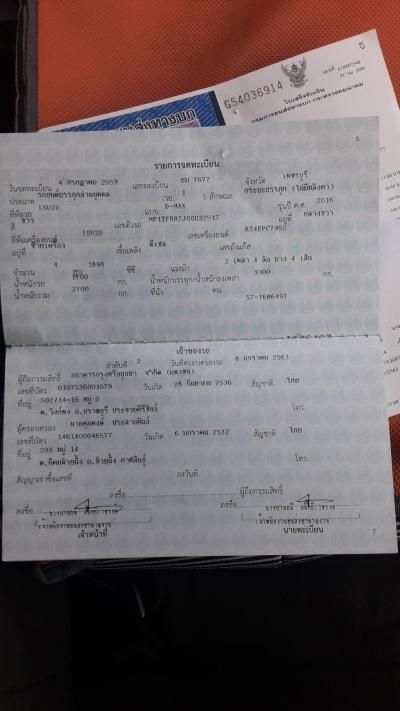 ขนส่งทางบก
G54036914
ใบเสร็จรับเงิน
กรมการขนส่งทางบก กระทรวงคมนาคม
6
รายการจดทะเบียน
วันจดทะเบียน 4 กรกฎาคม 2559 เลขทะเบียน ยม 7577 จังหวัด เพชรบุรี
ประเภท รถยนต์บรรทุกส่วนบุคคล (รย. 3 ) ลักษณะ กระบะบรรทุก (ไม่มีหลังคา)
ยี่ห้อรถ ISUZU แบบ D-MAX รุ่นปี ค.ศ. 2016
สี ขาว เลขตัวรถ MP1TFR87JGG032517 อยู่ที่ กลางขวา
ยี่ห้อเครื่องยนต์ ISUZU เลขเครื่องยนต์ RZ4EPC7952
อยู่ที่ ซ้ายเครื่อง เชื้อเพลิง ดีเซล เลขถังแก๊ส
จำนวน 4 สูบ 1898 ซีซี แรงม้า 2 เพลา 4 ล้อ ยาง 4 เส้น
น้ำหนักรถ 1700 กก. น้ำหนักบรรทุก/น้ำหนักลงเพลา 1000 กก.
น้ำหนักรวม 2700 กก. ที่นั่ง คน
57-1686497
เจ้าของรถ
ลำดับที่ 2 วันที่ครอบครองรถ 8 มกราคม 2561
ผู้ถือกรรมสิทธิ์ ธนาคารกรุงศรีอยุธยา จำกัด (มหาชน)
เลขที่บัตร 0107536001079 วันเกิด 28 กันยายน 2536 สัญชาติ ไทย
ที่อยู่ 502/14-15 หมู่ 2
ต.วังก์พง อ.ปราณบุรี ประจวบคีรีขันธ์ โทร.
ผู้ครอบครอง
เลขที่บัตร 1461400046577 วันเกิด 6 มกราคม 2532 สัญชาติ ไทย
ที่อยู่ 203 หมู่ 14
ต.นิคมห้วยผึ้ง อ.ห้วยผึ้ง กาฬสินธุ์ โทร.
สัญญาเช่าซื้อเลขที่ ลงวันที่
ลงชื่อ ผู้ถือกรรมสิทธิ์
ลงชื่อ ลงชื่อ
เจ้าหน้าที่ นายทะเบียน
7